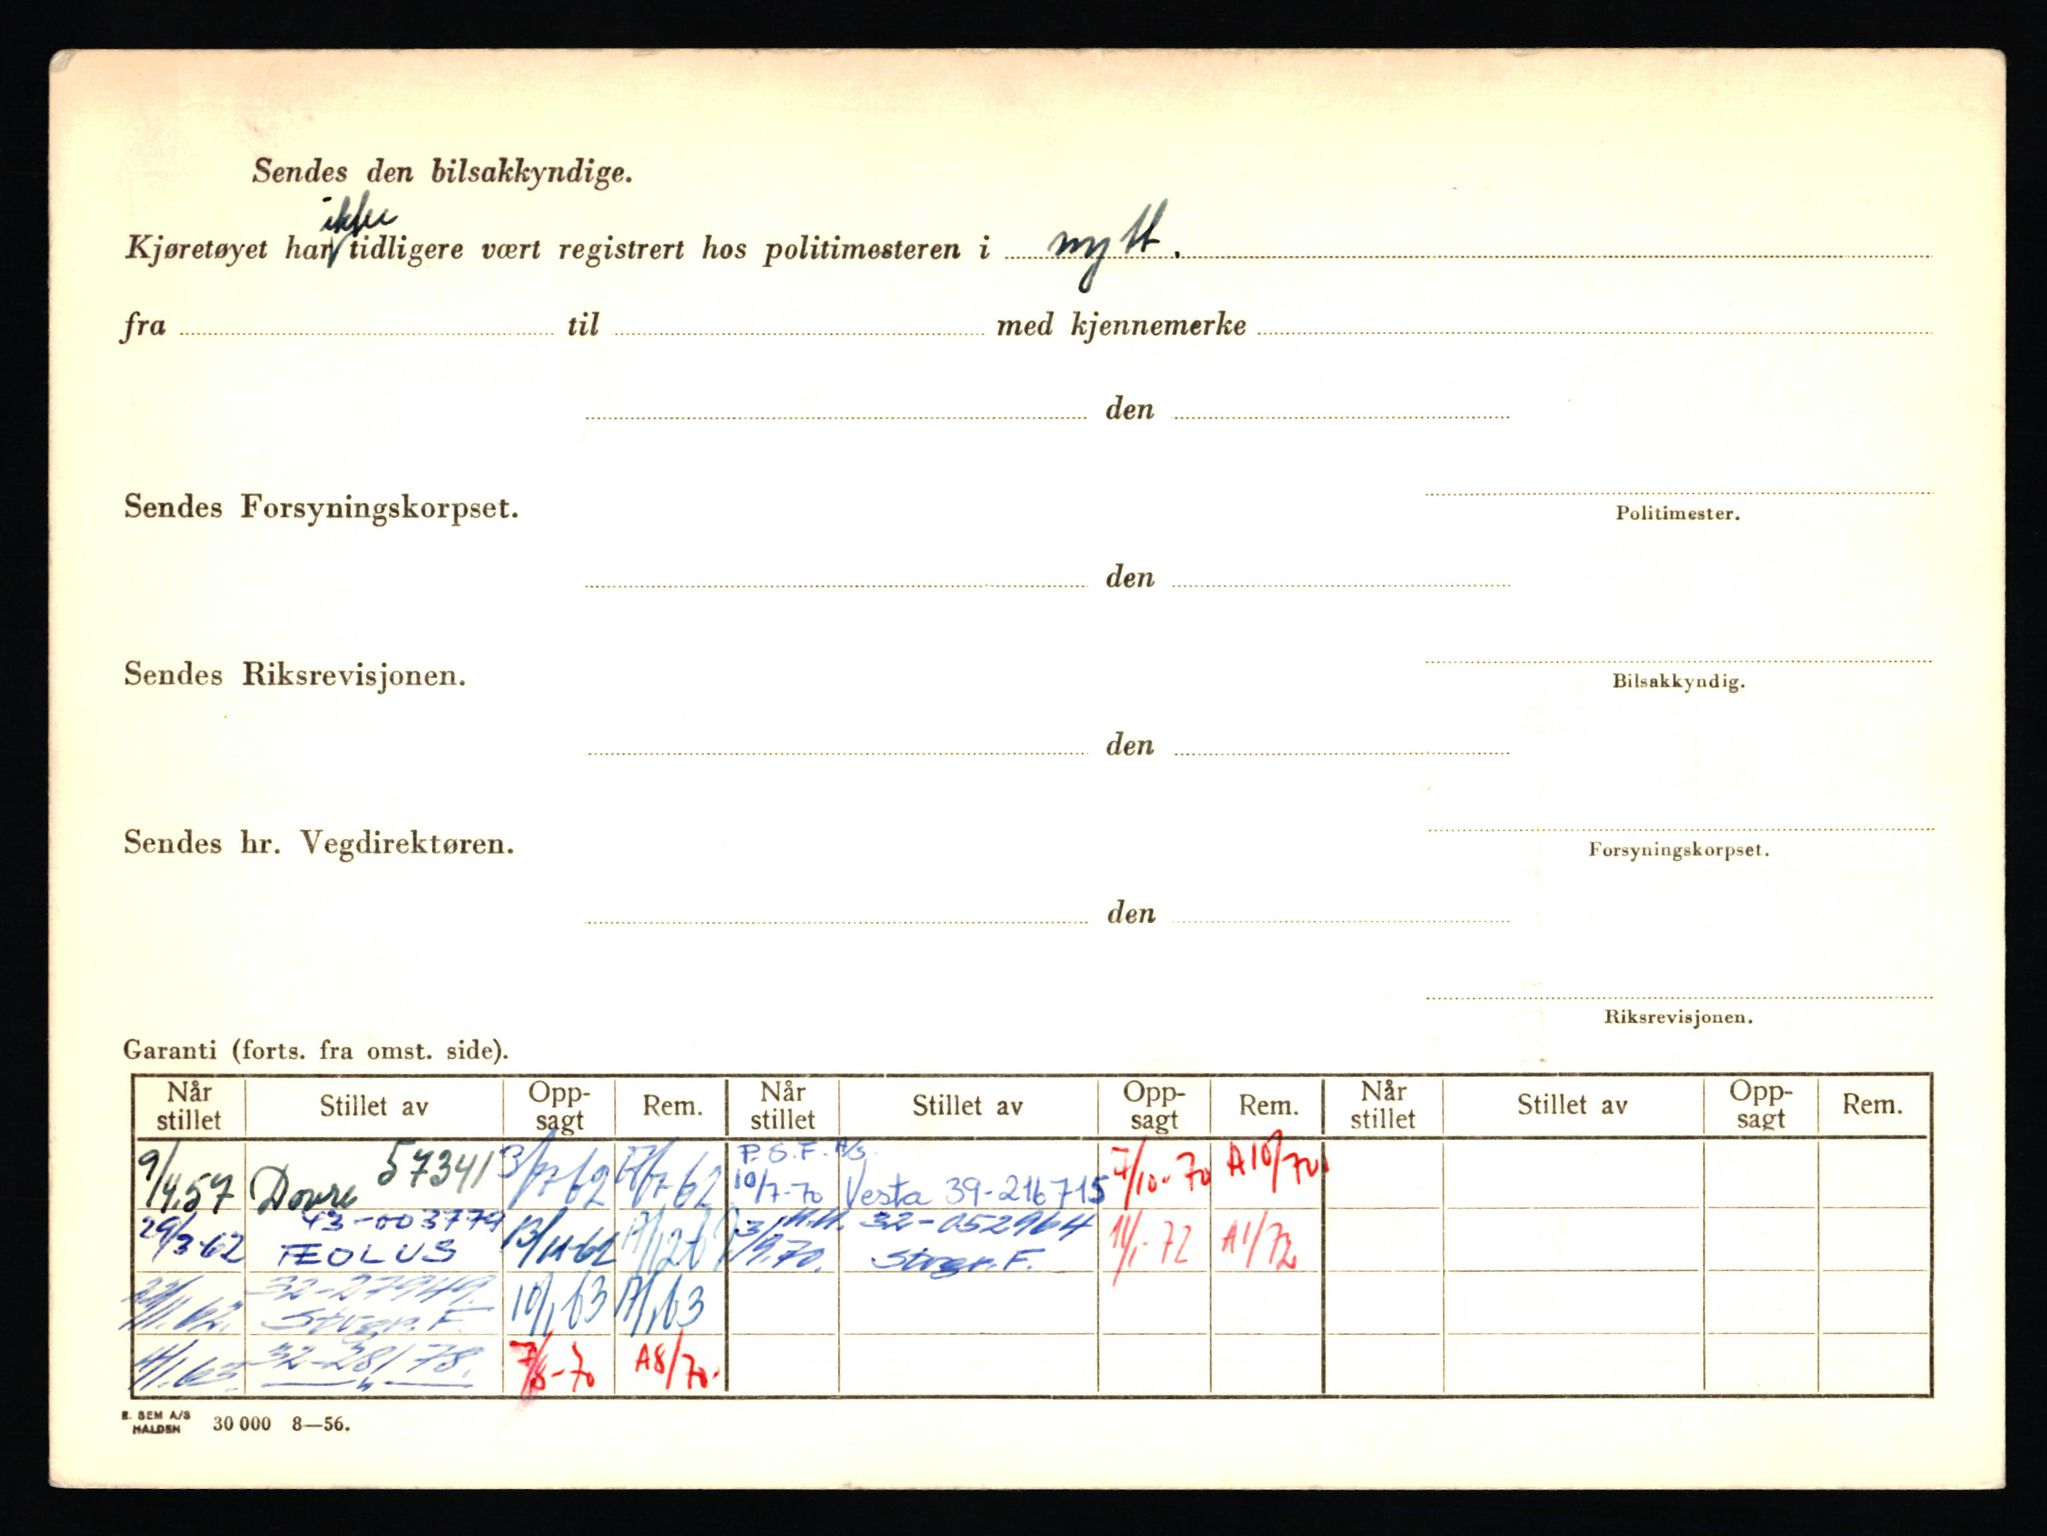 Sendes den bilsakkyndige.
ikke
Kjøretøyet har tidligere vært registrert hos politimesteren i nytt.
fra til med kjennemerke
den
Sendes Forsyningskorpset.
Politimester.
den
Sendes Riksrevisjonen.
Bilsakkyndig.
den
Sendes hr. Vegdirektøren.
Forsyningskorpset.
den
Riksrevisjonen.
Garanti (forts. fra omst. side).
Når stillet Stillet av Oppsagt Rem. Når stillet Stillet av Oppsagt Rem. Når stillet Stillet av Oppsagt Rem.
9/4.57 Dovre 57341 3/7 62 17/7 62
P.S.F. A/S.
10/7-70 Vesta 39-216715 7/10-70 A10/70.
29/3-62 43-003779 ÆOLUS 13/11-62
32-052964 Storgr. F. 11/1-72 A1/72
32-27949. Storgr. F. 10/1 63 17/1 63
11/1.63. 32-28178. 7/8-70 A8/70.
E. SEM A/S
HALDEN
30 000 8—56.